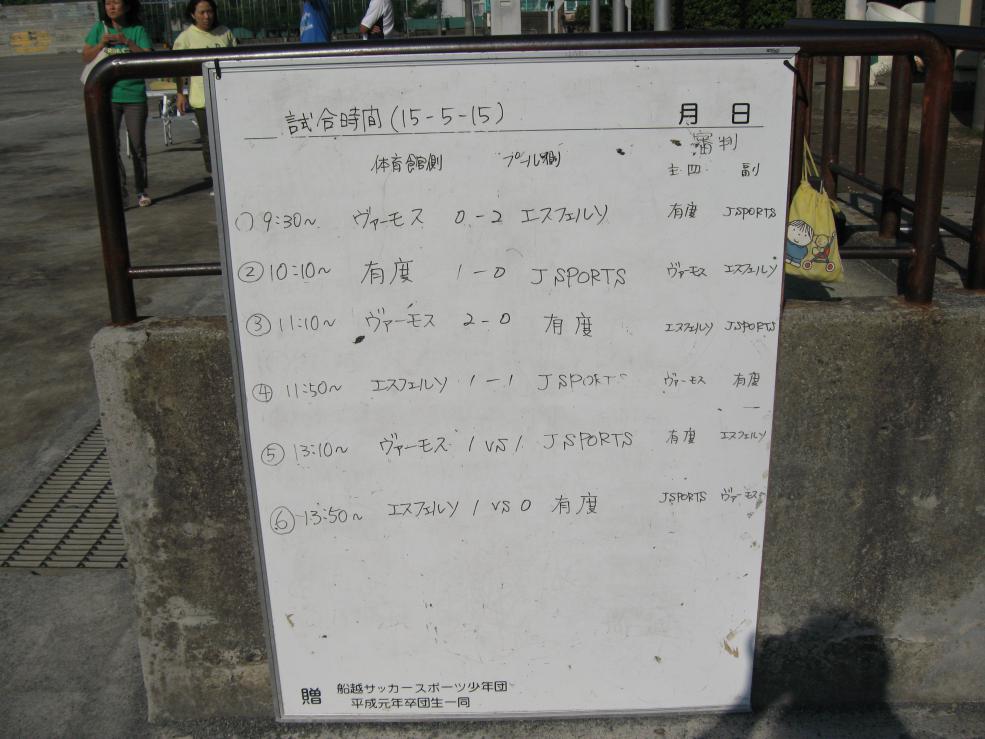 試合時間(15-5-15) 月 日
審判
体育館側 プール側 主四 副
① 9:30~ ヴァーモス 0-2 エスフェルソ 有度 JSPORTS
② 10:10~ 有度 1-0 J SPORTS ヴァーモス エスフェルソ
③ 11:10~ ヴァーモス 2-0 有度 エスフェルソ JSPORTS
④ 11:50~ エスフェルソ 1-1 J SPORTS ヴァーモス 有度
⑤ 13:10~ ヴァーモス 1 vs 1 J SPORTS 有度 エスフェルソ
⑥ 13:50~ エスフェルソ 1 vs 0 有度 JSPORTS ヴァーモス
贈 船越サッカースポーツ少年団
平成元年卒団生一同